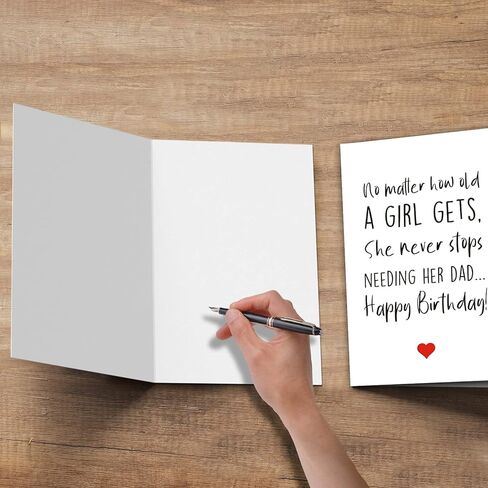 No matter how old
A GIRL GETS,
She never stops
NEEDING HER DAD...
Happy Birthday!